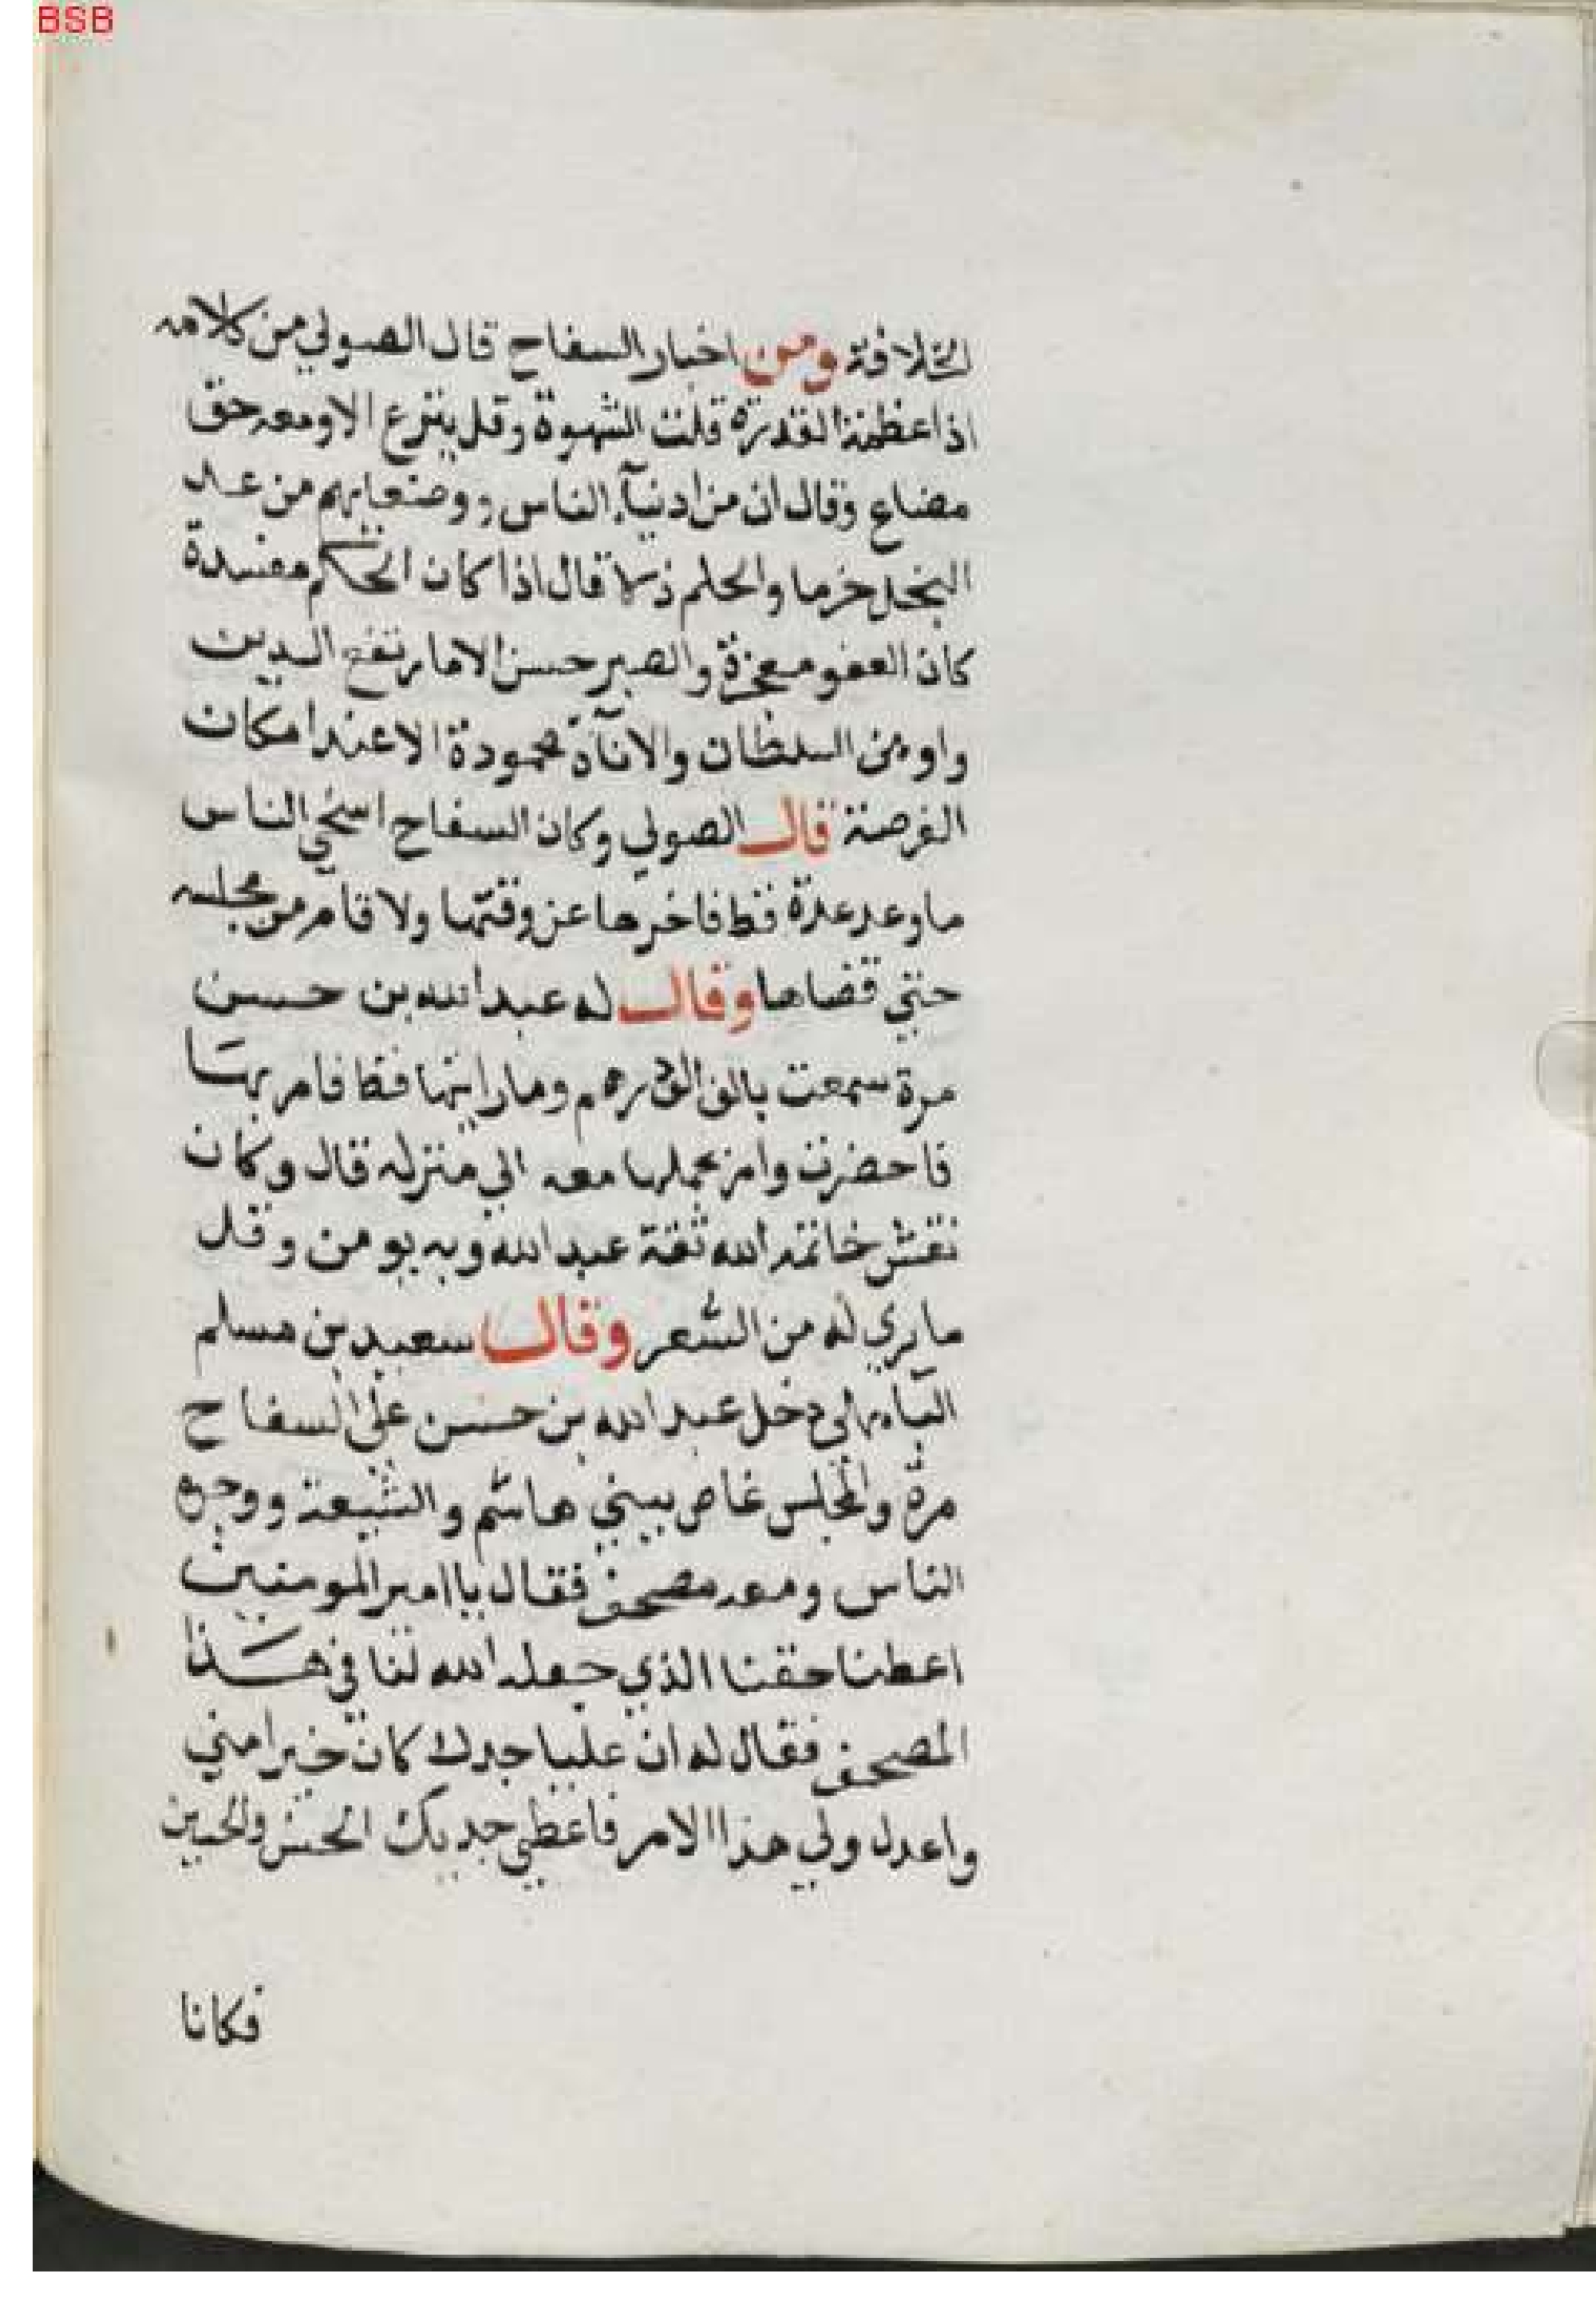 BSB
الخلافة ومن اخبار السفاح قال الصولي من كلامه
اذا عظمة القدرة قلت الشهوة وقل ينزع الا ومعه حق
مضاع وقال ان من ادنياء الناس ووضعايهم من عد
البخل حزما والحلم ذلا قال اذا كان الحكم مفسدة
كان العفو معجزة والصبر حسن الا ما رتفع الدين
واومن السلطان والاناة محمودة الا عند امكان
الفرصة قال الصولي وكان السفاح اسخي الناس
ما وعد عدة قط فاخرها عن وقتها ولا قام من مجلسه
حتي قضاها وقال له عبد الله بن حسن
مرة سمعت بالف الف درهم وما رايتها قط فامر بها
فاحضرت وامر بحملها معه الي منزله قال وكان
نقش خاتمه الله ثقة عبد الله وبه يومن وقل
ما يري له من الشعر وقال سعيد بن مسلم
الباهلي دخل عبد الله بن حسن علي السفاح
مرة والمجلس غاص ببني هاشم والشيعة ووجوه
الناس ومعه مصحف فقال يا امير المومنين
اعطنا حقنا الذي جعله الله لنا في هذا
المصحف فقال له ان عليا جدك كان خيرا مني
واعدل ولي هذا الامر فاعطي جديك الحسن والحسين
فكانا